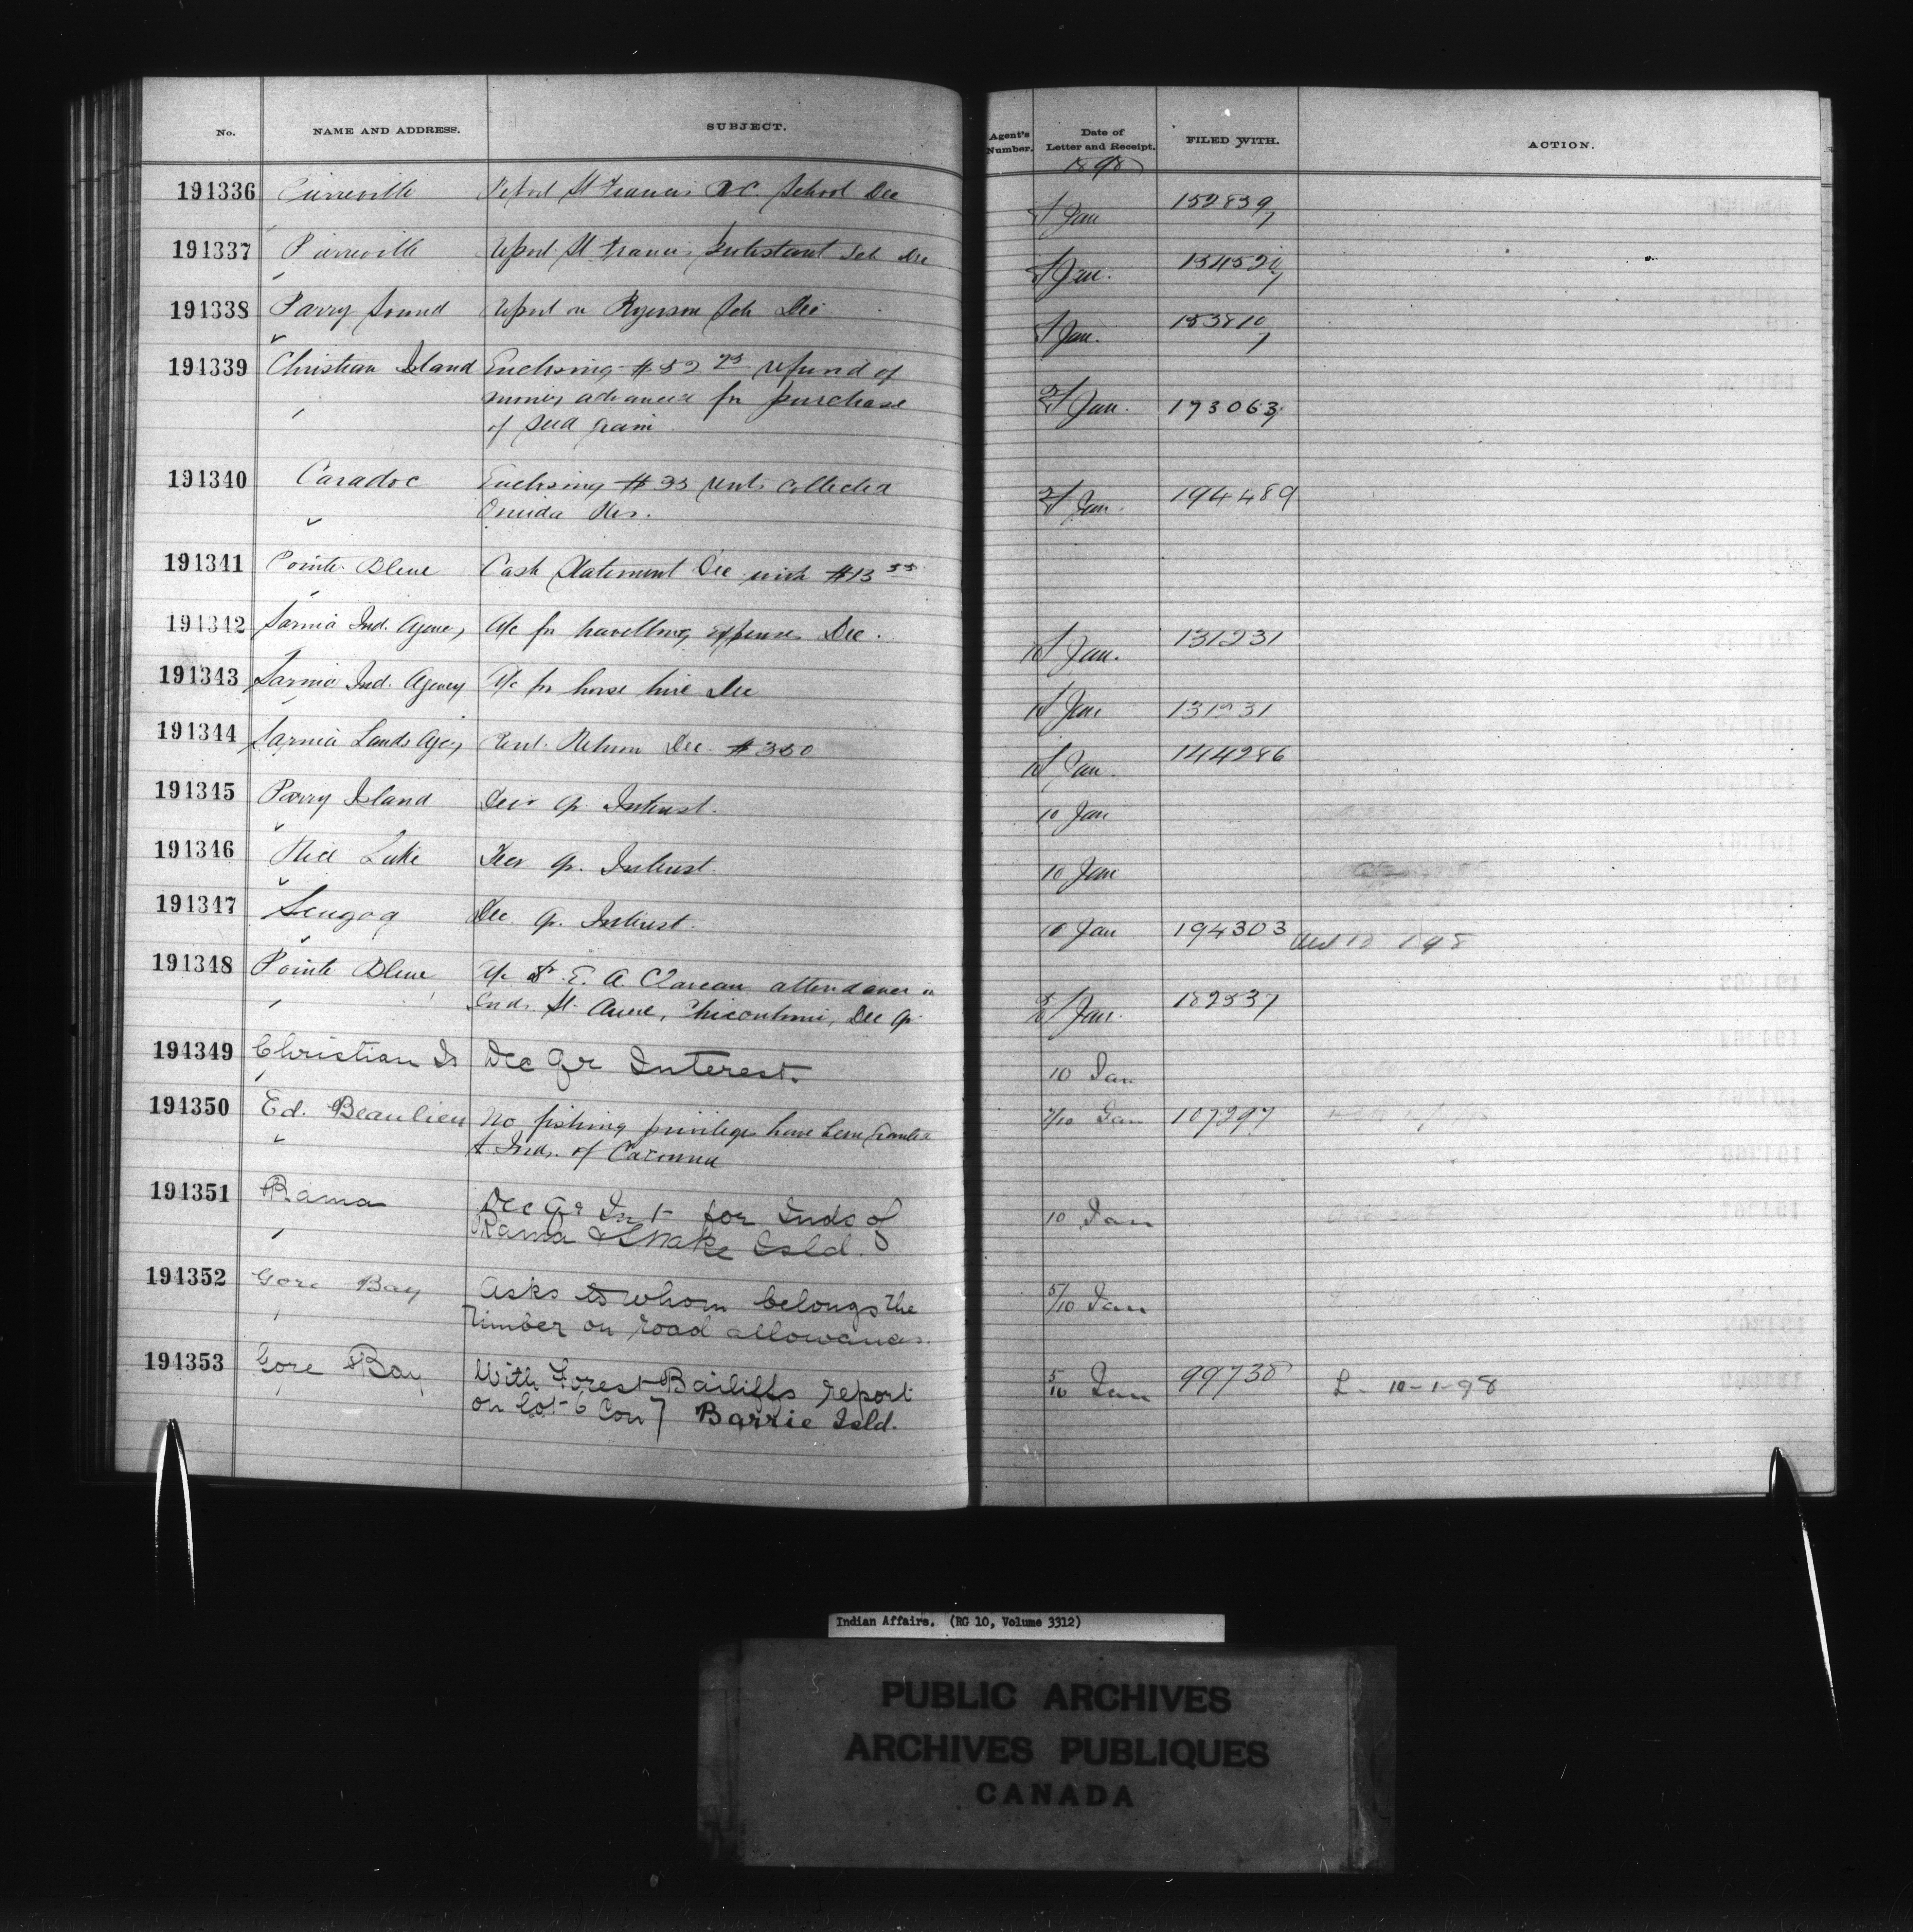 No. NAME AND ADDRESS. SUBJECT. Agent's Number. Date of Letter and Receipt. FILED WITH. ACTION.
1898
191336 Pierreville Report St Francis R.C. School Dec Jan 152839
191337 Pierreville Report St Francis Protestant Sch Dec Jan. 154520
191338 Parry Sound Report on Ryerson Sch Dec Jan. 153810
191339 Christian Island Enclosing $52 75 refund of
money advanced for purchase Jan. 193063
of seed grain
191340 Caradoc Enclosing $35 rents collected Jan. 194489
Oneida Res.
191341 Pointe Bleue Cash Statement Dec with $13 55
191342 Sarnia Ind. Agency A/c for travelling expenses Dec. 10 Jan. 131231
191343 Sarnia Ind. Agency A/c for horse hire Dec 10 Jan 131231
191344 Sarnia Lands Agcy Rent Return Dec. $350 10 Jan. 144286
191345 Parry Island Decr qr. Interest. 10 Jan
191346 Rice Lake Decr qr. Interest. 10 Jan
191347 Scugog Dec qr. Interest. 10 Jan 194303
191348 Pointe Bleue A/c Dr. E. A. Claveau attendance on
Inds. St. Anne, Chicoutimi, Dec qr. Jan. 182537
191349 Christian Is Dec Qr Interest. 10 Jan
191350 Ed. Beaulieu No fishing privileges have been granted 7/10 Jan 107297
to Inds. of Cacouna
191351 Rama Dec Qr Int for Inds of 10 Jan
Rama & Snake Isld.
191352 Gore Bay Asks to whom belongs the 5/10 Jan
timber on road allowances.
191353 Gore Bay With Forest Bailiffs report 5/10 Jan 99738 L. 10-1-98
on Lot 6 Con 7 Barrie Isld.
Indian Affairs. (RG 10, Volume 3312)
PUBLIC ARCHIVES
ARCHIVES PUBLIQUES
CANADA